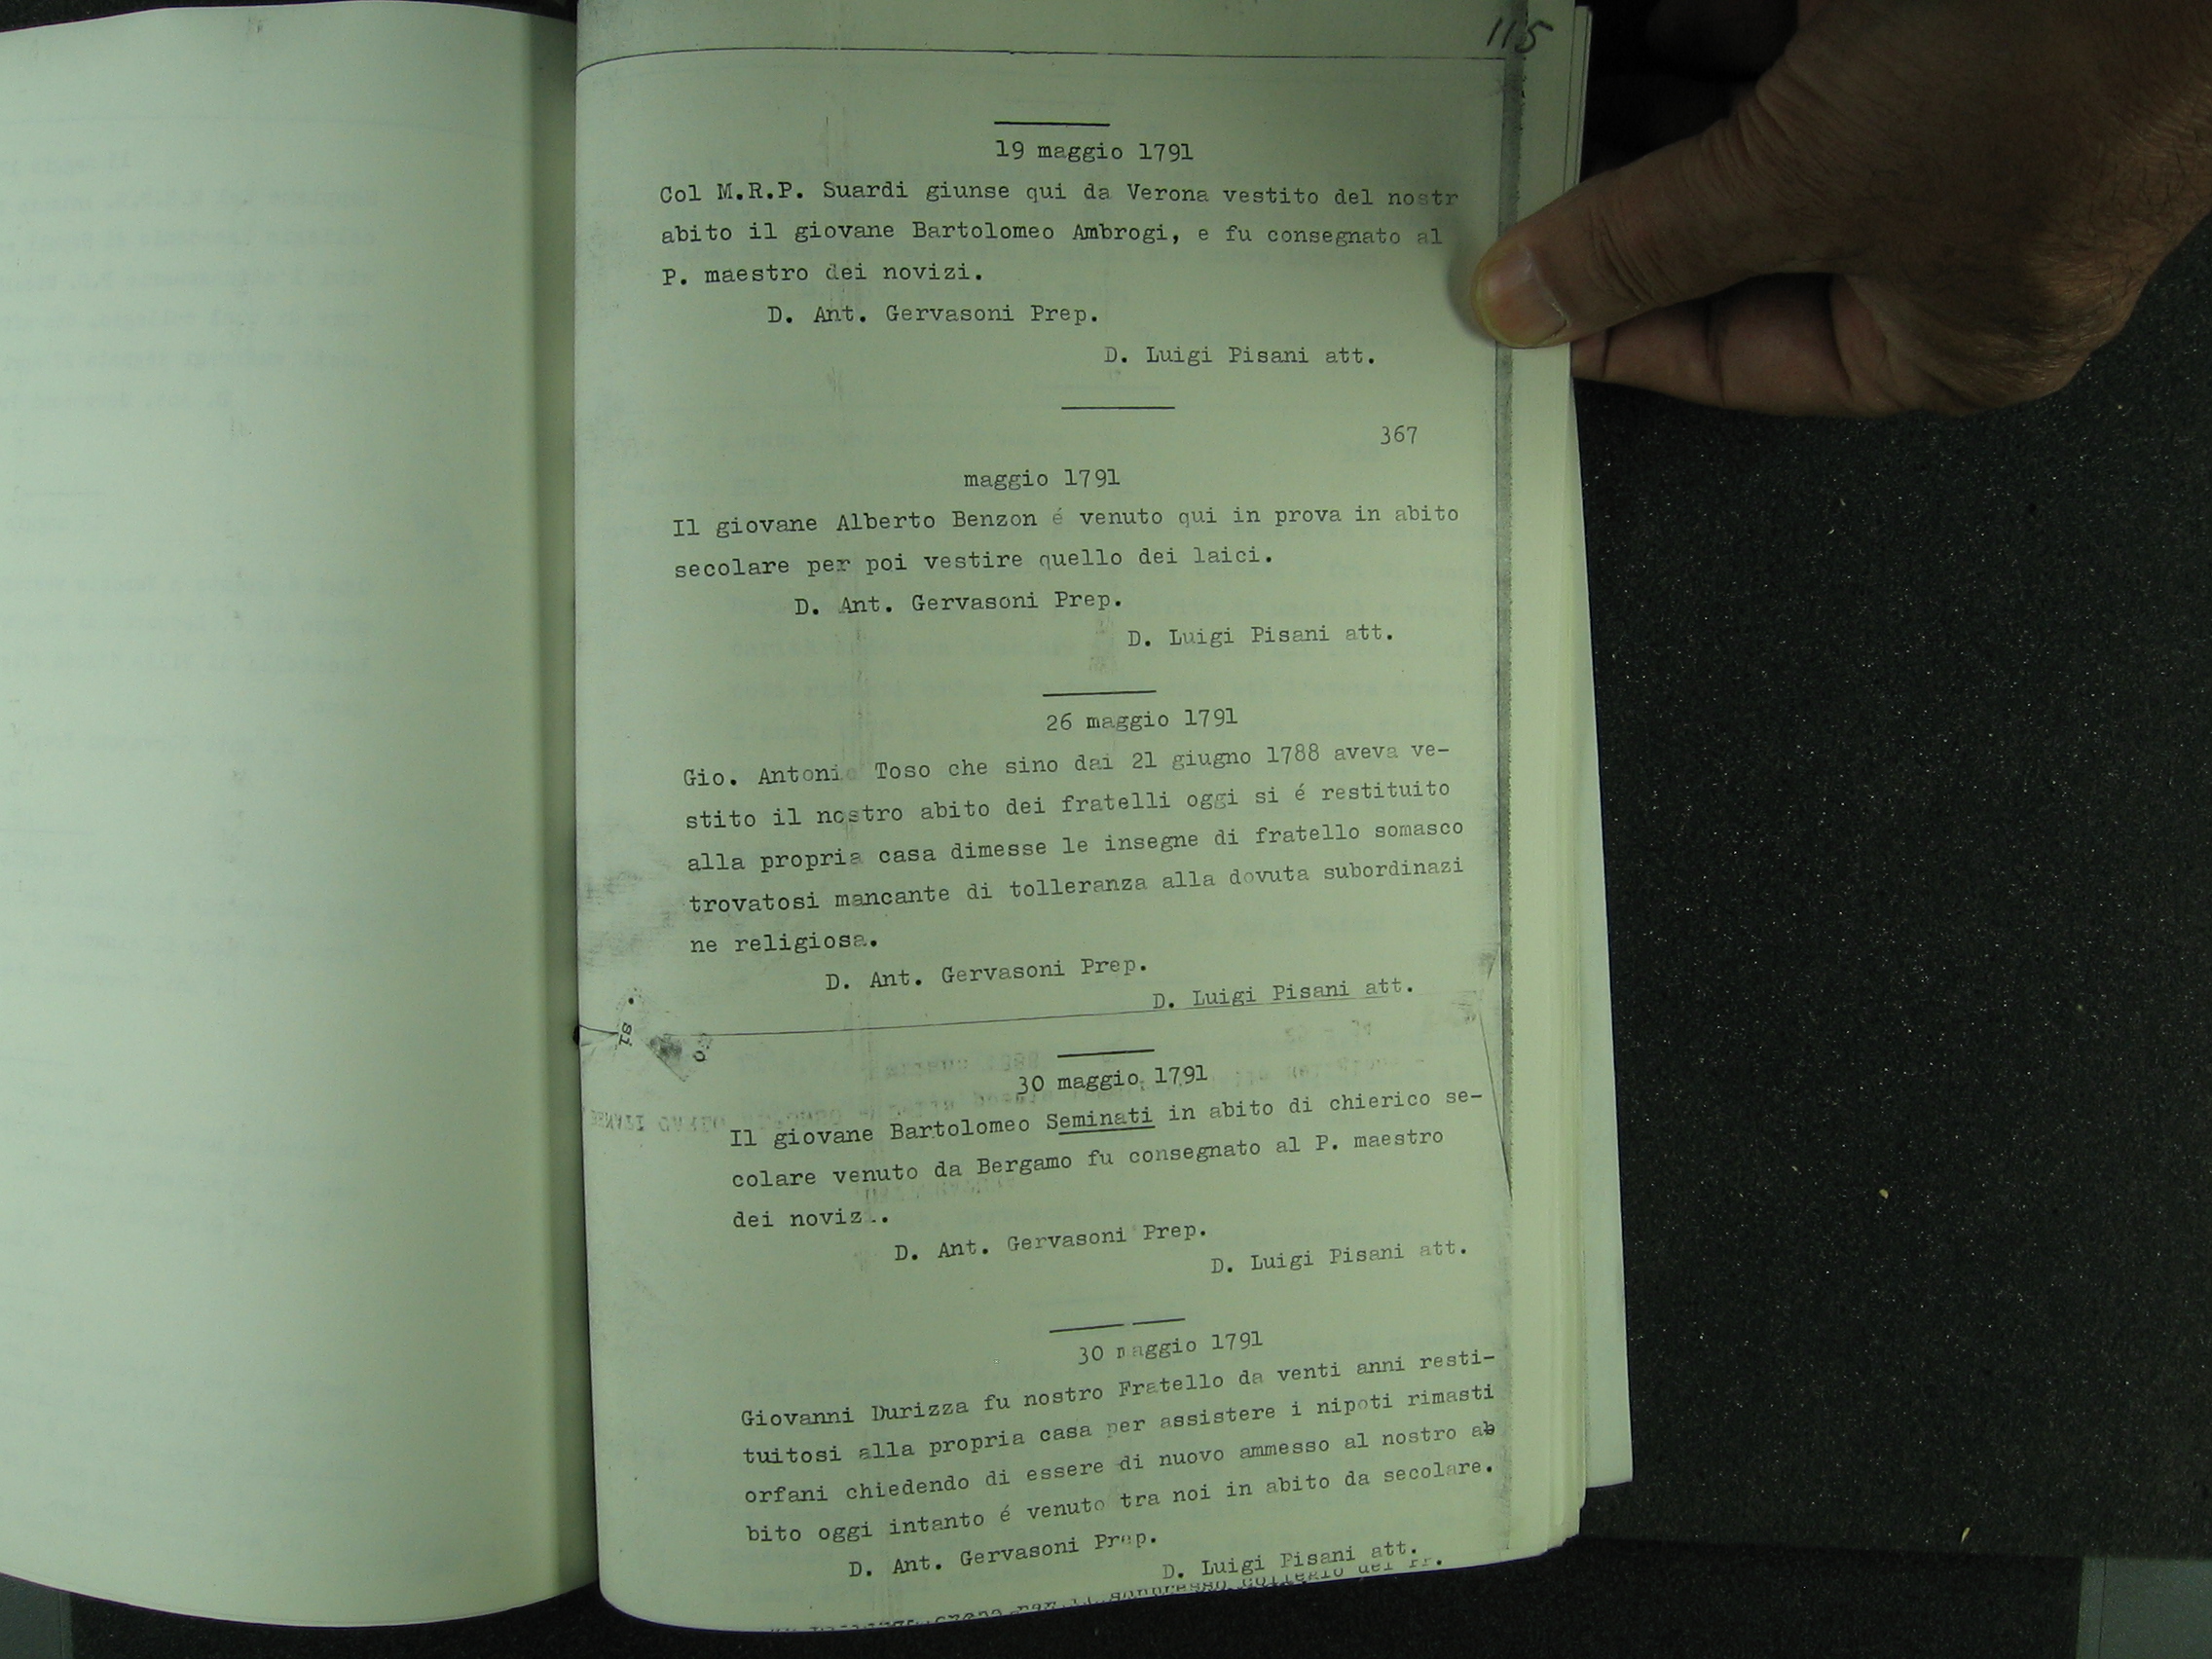 115
19 maggio 1791
Col M.R.P. Suardi giunse qui da Verona vestito del nostr
abito il giovane Bartolomeo Ambrogi, e fu consegnato al
P. maestro dei novizi.
D. Ant. Gervasoni Prep.
D. Luigi Pisani att.
367
maggio 1791
Il giovane Alberto Benzon é venuto qui in prova in abito
secolare per poi vestire quello dei laici.
D. Ant. Gervasoni Prep.
D. Luigi Pisani att.
26 maggio 1791
Gio. Antonio Toso che sino dai 21 giugno 1788 aveva ve-
stito il nostro abito dei fratelli oggi si é restituito
alla propria casa dimesse le insegne di fratello somasco
trovatosi mancante di tolleranza alla dovuta subordinazi
ne religiosa.
D. Ant. Gervasoni Prep.
D. Luigi Pisani att.
30 maggio 1791
Il giovane Bartolomeo Seminati in abito di chierico se-
colare venuto da Bergamo fu consegnato al P. maestro
dei noviz..
D. Ant. Gervasoni Prep.
D. Luigi Pisani att.
30 maggio 1791
Giovanni Durizza fu nostro Fratello da venti anni resti-
tuitosi alla propria casa per assistere i nipoti rimasti
orfani chiedendo di essere di nuovo ammesso al nostro ab
bito oggi intanto é venuto tra noi in abito da secolare.
D. Ant. Gervasoni Prep.
D. Luigi Pisani att.